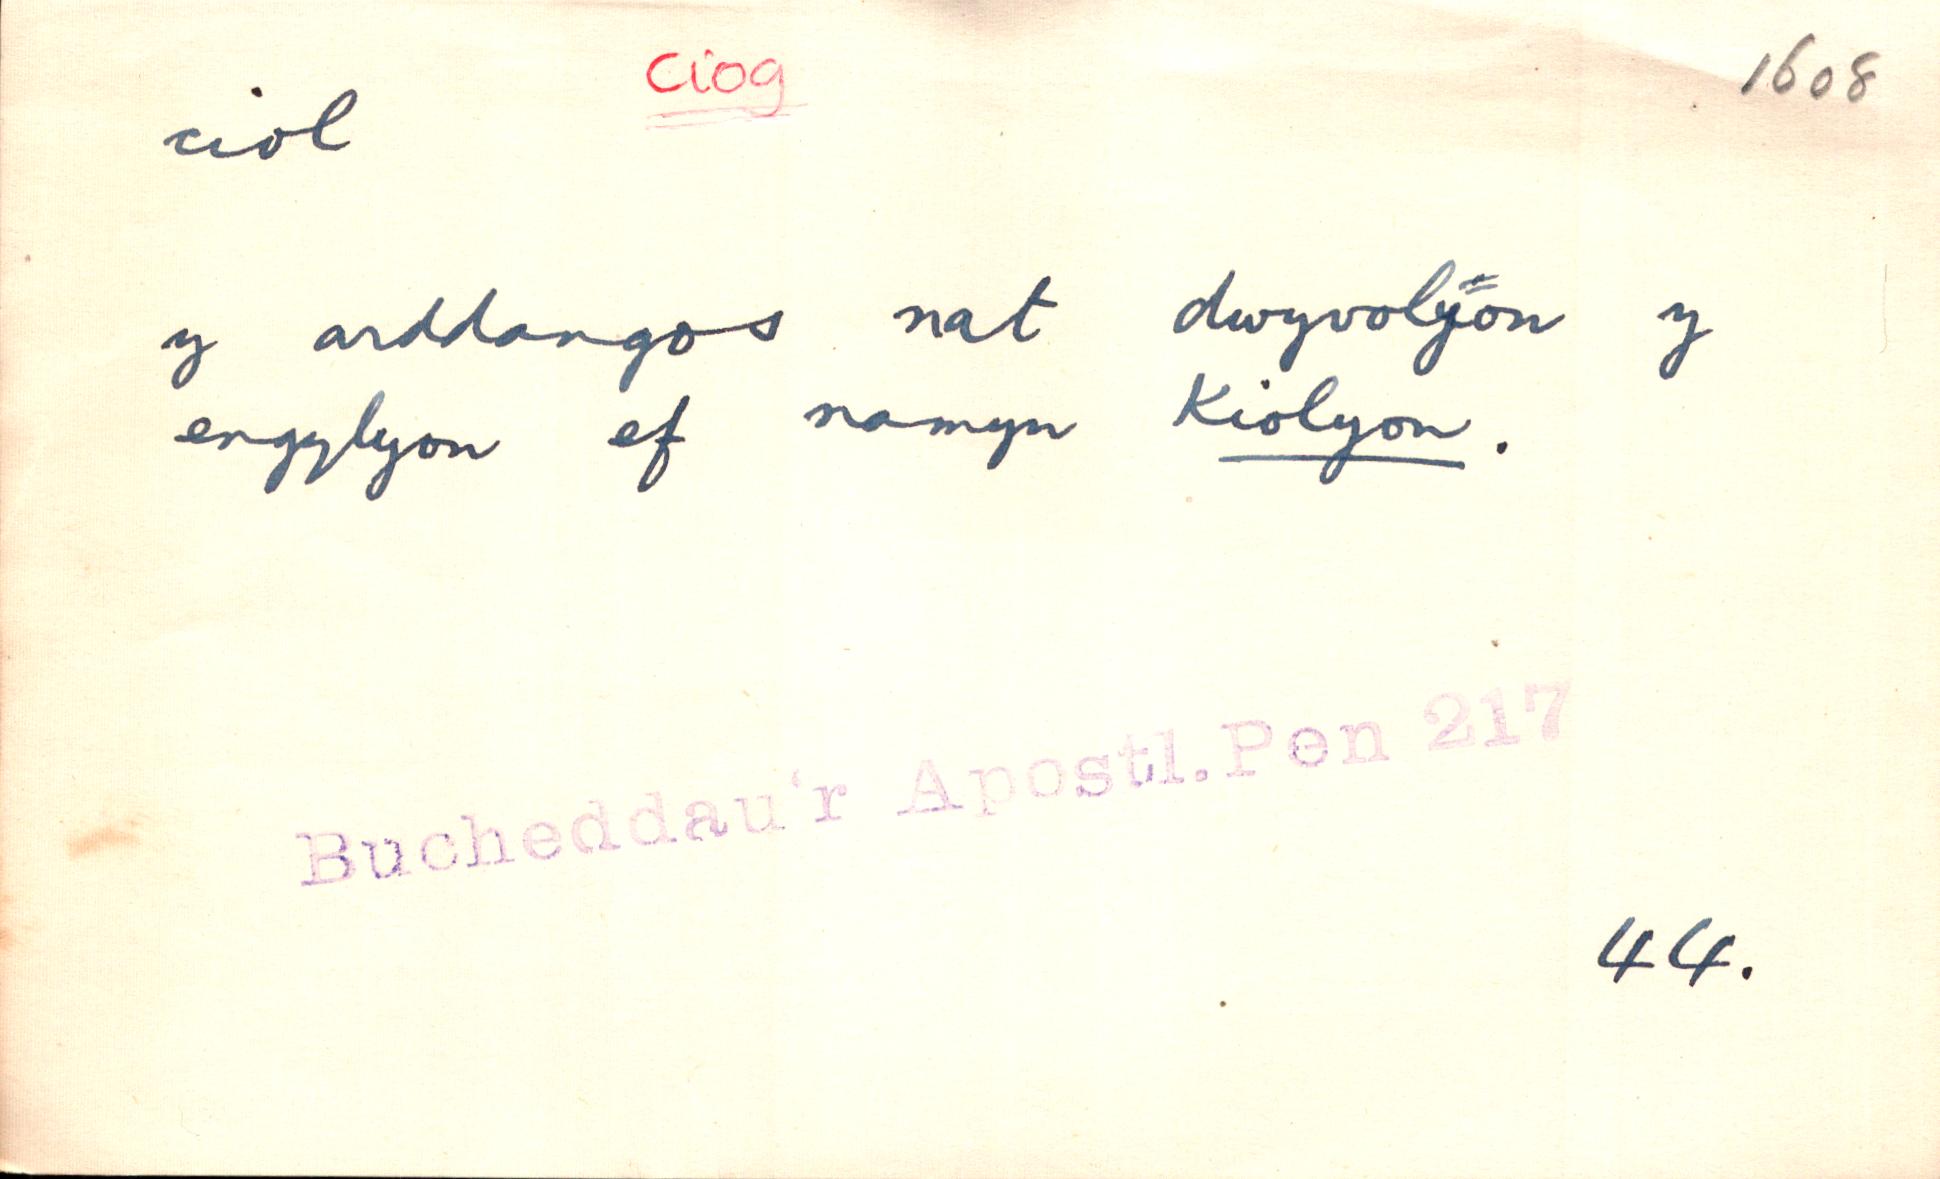 ciog
1608
ciol
y arddangos nat dwyvolyon y
engylyon ef namyn Kiolyon.
Bucheddau'r Apostl.Pen 217
44.